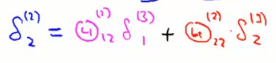 δ₂⁽²⁾ = Ⓗ₁₂⁽²⁾ δ₁⁽³⁾ + Ⓗ₂₂⁽²⁾ · δ₂⁽³⁾